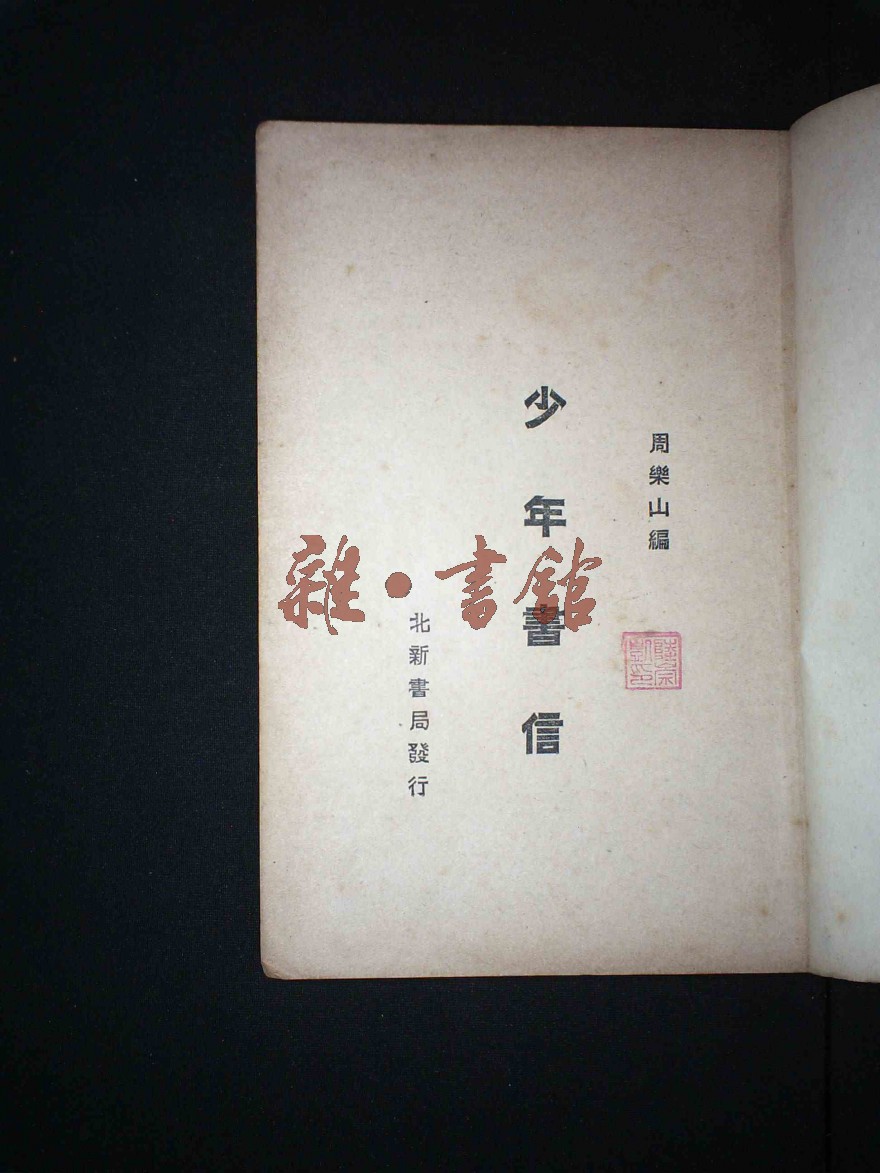 周樂山編
少年書信
北新書局發行
雜·書館